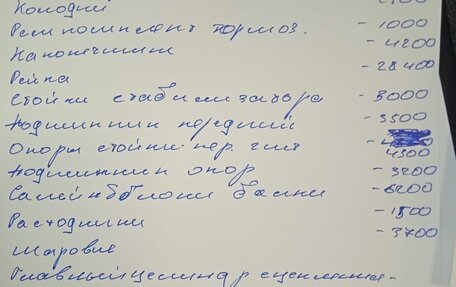 Колодки
Ремкомплект тормоз. - 1000
Наконечники - 4200
Рейка - 28400
Стойки стабилизатора - 3000
Подшипник передний - 3500
Опоры стойки пер. 2шт 4500
Подшипники опор - 3200
Салейнтблоки балки - 6200
Расходники - 1500
Шаровые - 3700
Главный цилиндр сцепления -